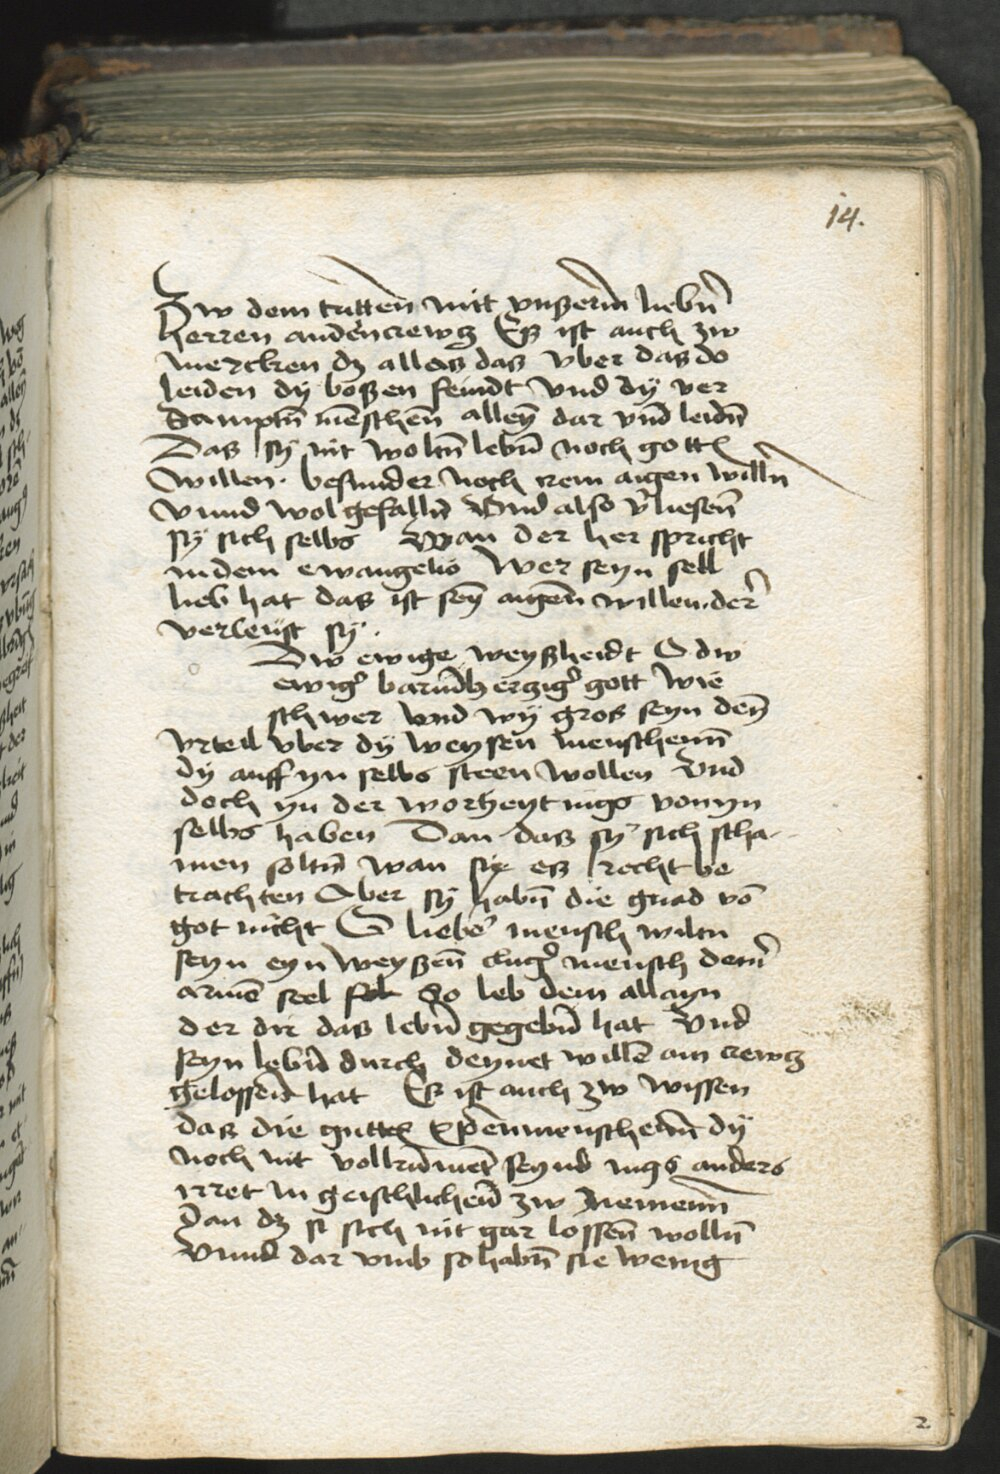 14.
Zw dem tritten mitt vnßerm liebn̄
herren an den crewcz Eß ist auch zw
mercken dz alles das vber das do
leiden dÿ boßen feindt Vnd dÿ ver
dampten menschen̄ alleȳ dar vm̄ leidn̄
Das sÿ nit woltn̄ lebn̄ noch gottes
willen · besunder noch irem aigen willn̄
vnnd wolgefalln̄ Vnd also v̓liesen̄
sÿ sich selbs Wan der her spricht
in dem ewangelio Wer seyn sell
lieb hat das ist seȳ aigen̄ willen · der
verleüst sÿ ·
Dw ewige weyßheidt O dw
ewig̓ barmherczig̓ gott wie
schwer vnd wÿ gros seyn deȳ
vrteil vber dÿ weysen menschenn̄
dÿ auff yn selbs steen wollen Vnd
doch yn der worheyt nigs von yn
selbs haben Dan das sÿ sich scha-
men soltn̄ wan sie es recht be
trachten Aber sÿ habn̄ die gnad vō
got nicht O lieber mensch wiltu
seyn eyn weyßen̄ clug̓ mensch deiner
armē seel So leb dem allayn
der dir das lebn̄ gegebn̄ hat Vnd
seyn lebn̄ durch deynet willē am crewcz
gelossen̄ hat Es ist auch zw wissen
das die gutten menschen̄ dÿ
noch nit seynd nigs anders
irret in geistlichen̄ zw nemenn̄
Dan dz si sich nit gar lossen̄ wolln̄
Vnnd dar vmb so habn̄ sie wenig
2